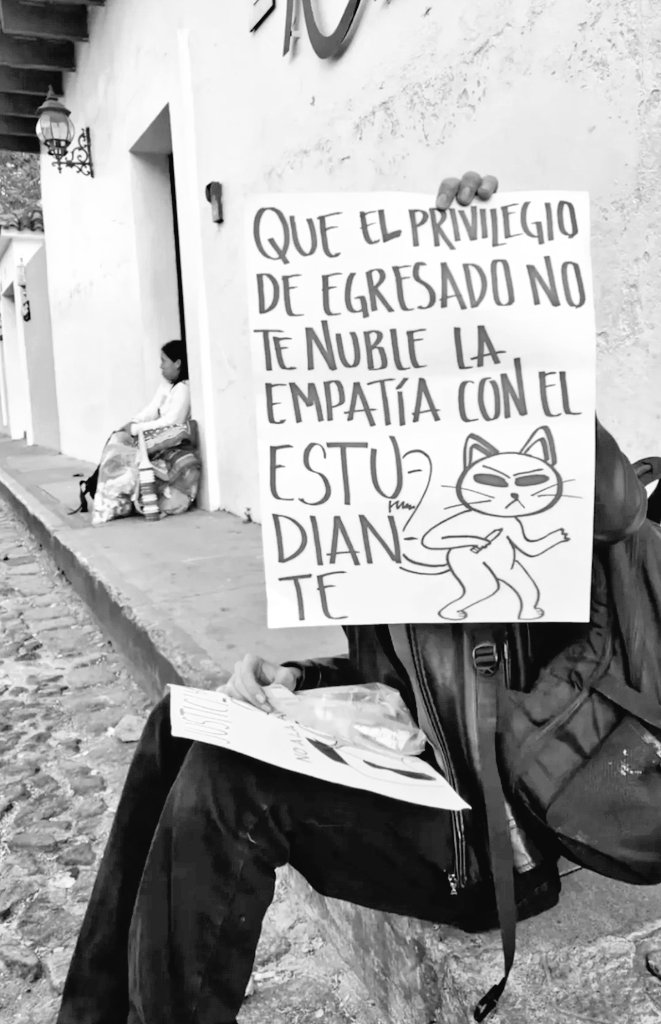 QUE EL PRIVILEGIO
DE EGRESADO NO
TE NUBLE LA
EMPATÍA CON EL
ESTU
DIAN
TE